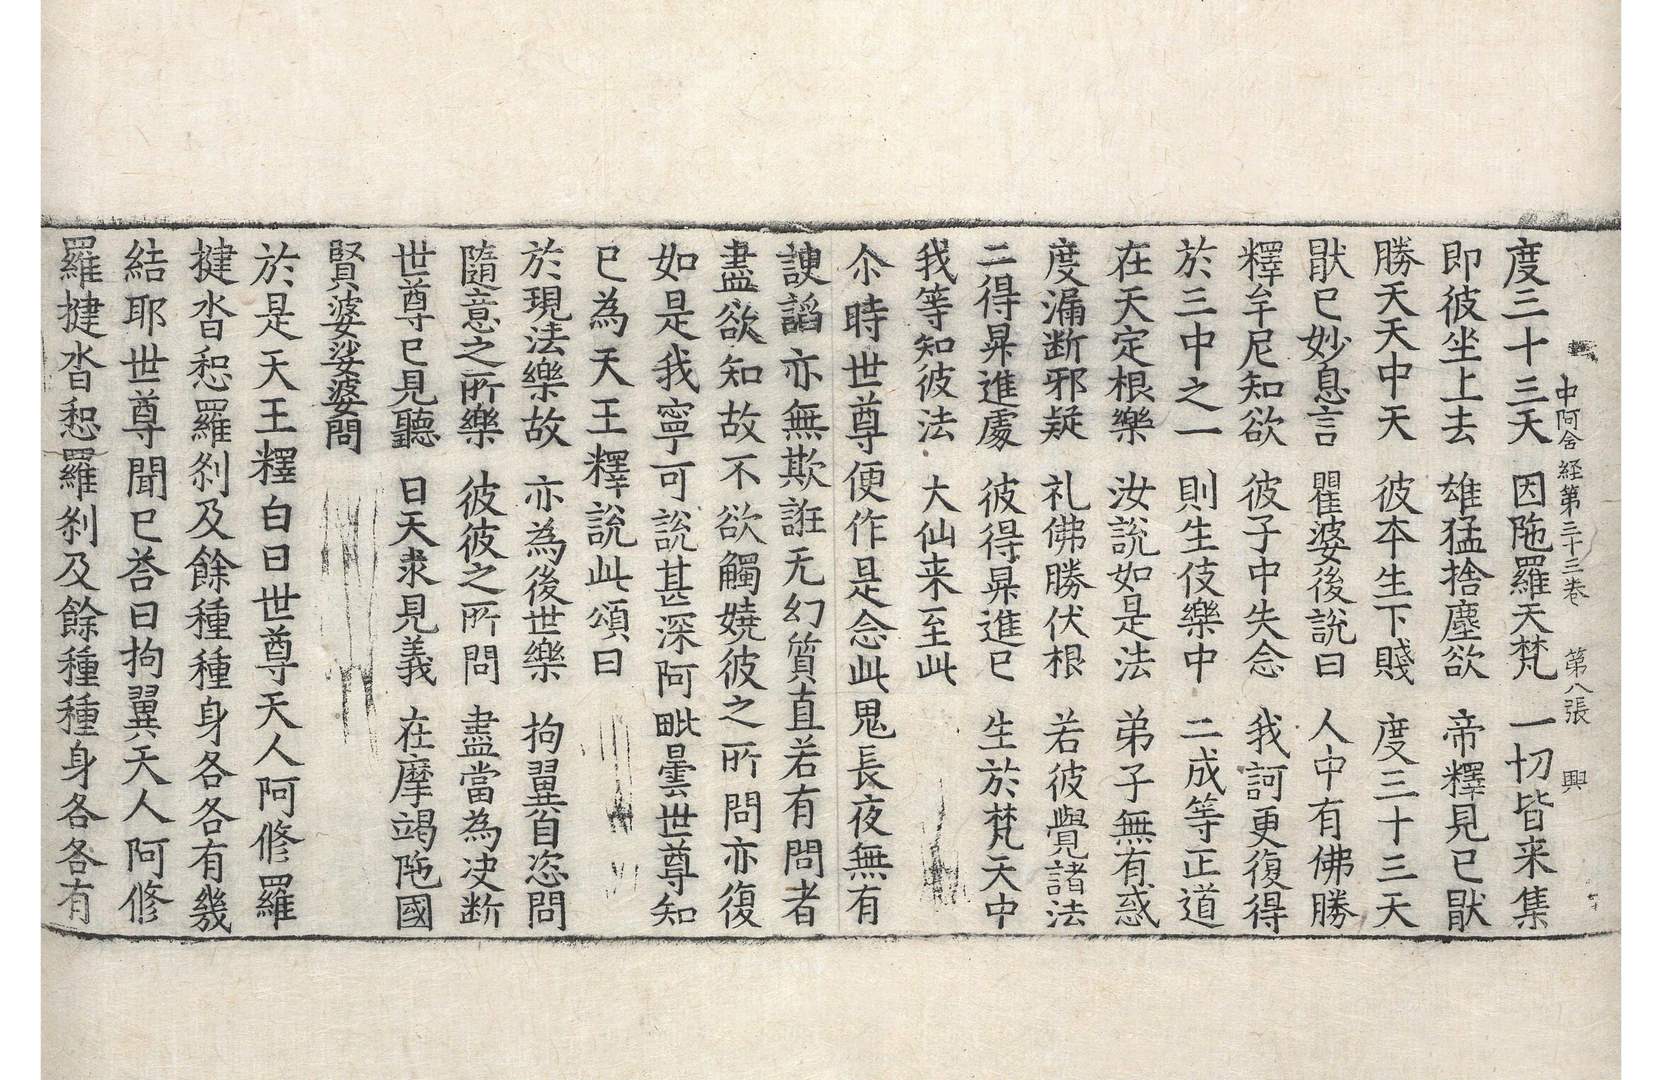 中阿含経第三十三卷 第八張 興
度三十三天 因陁羅天梵 一切皆来集
即彼坐上去 雄猛捨塵欲 帝釋見已猒
勝天天中天 彼本生下賤 度三十三天
猒已妙息言 瞿婆後說曰 人中有佛勝
釋牟尼知欲 彼子中失念 我訶更復得
於三中之一 則生伎樂中 二成等正道
在天定根樂 汝說如是法 弟子無有惑
度漏断邪疑 礼佛勝伏根 若彼覺諸法
二得昇進處 彼得昇進已 生於梵天中
我等知彼法 大仙来至此
尒時世尊便作是念此鬼長夜無有
諛諂亦無欺誑无幻質直若有問者
盡欲知故不欲觸嬈彼之所問亦復
如是我寧可說甚深阿毗曇世尊知
已為天王釋說此頌曰
於現法樂故 亦為後世樂 拘翼自恣問
隨意之所樂 彼彼之所問 盡當為决断
世尊已見聽 日天求見義 在摩竭陁國
賢婆娑婆問
於是天王釋白曰世尊天人阿修羅
揵沓惒羅刹及餘種種身各各有幾
結耶世尊聞已荅曰拘翼天人阿修
羅揵沓惒羅刹及餘種種身各各有